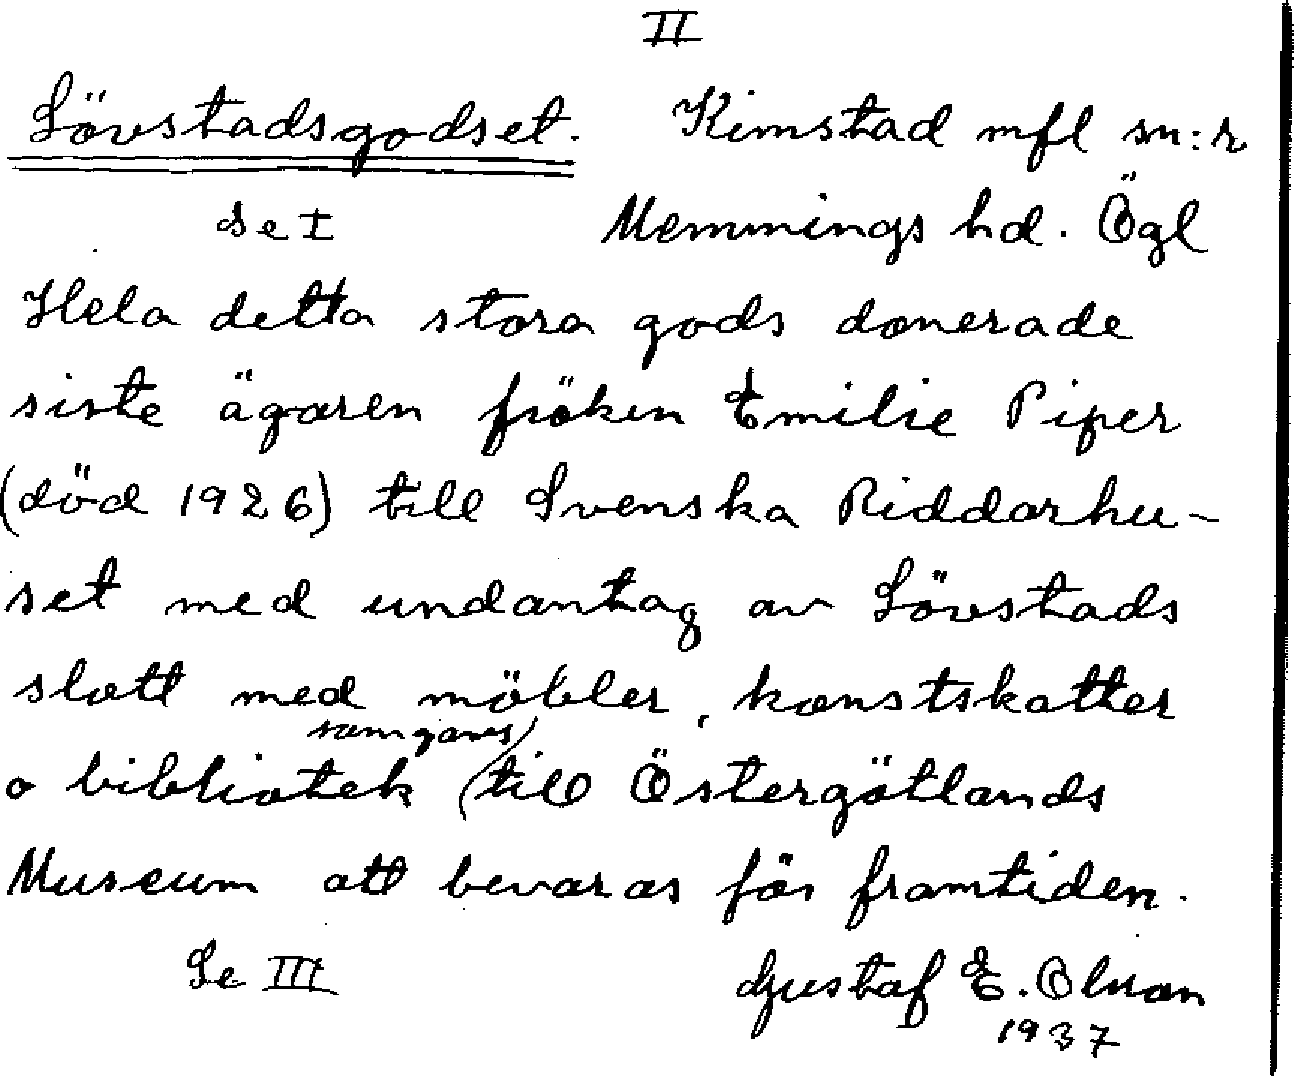 II
Lövstadsgodset. Kimstad mfl sn:r
se I Memmings hd. Ögl
Hela detta stora gods donerade
siste ägaren fröken Emilie Piper
(död 1926) till Svenska Riddarhu-
set med undantag av Lövstads
slott med möbler, konstskatter
samgavs
o bibliotek (till Östergötlands
Museum att bevaras för framtiden.
Se III Gustaf E. Olsson
1937